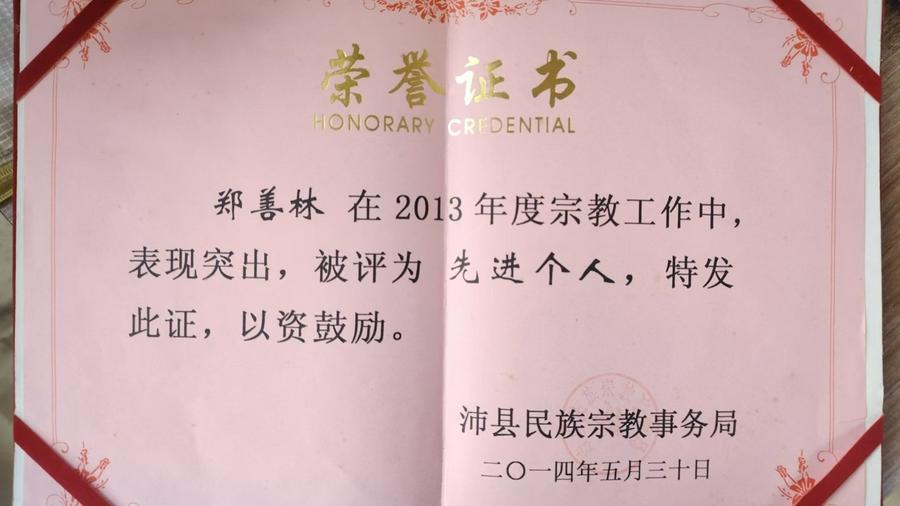 荣誉证书
HONORARY CREDENTIAL
郑善林 在 2013 年度宗教工作中，
表现突出，被评为 先进个人，特发
此证，以资鼓励。
沛县民族宗教事务局
二〇一四年五月三十日